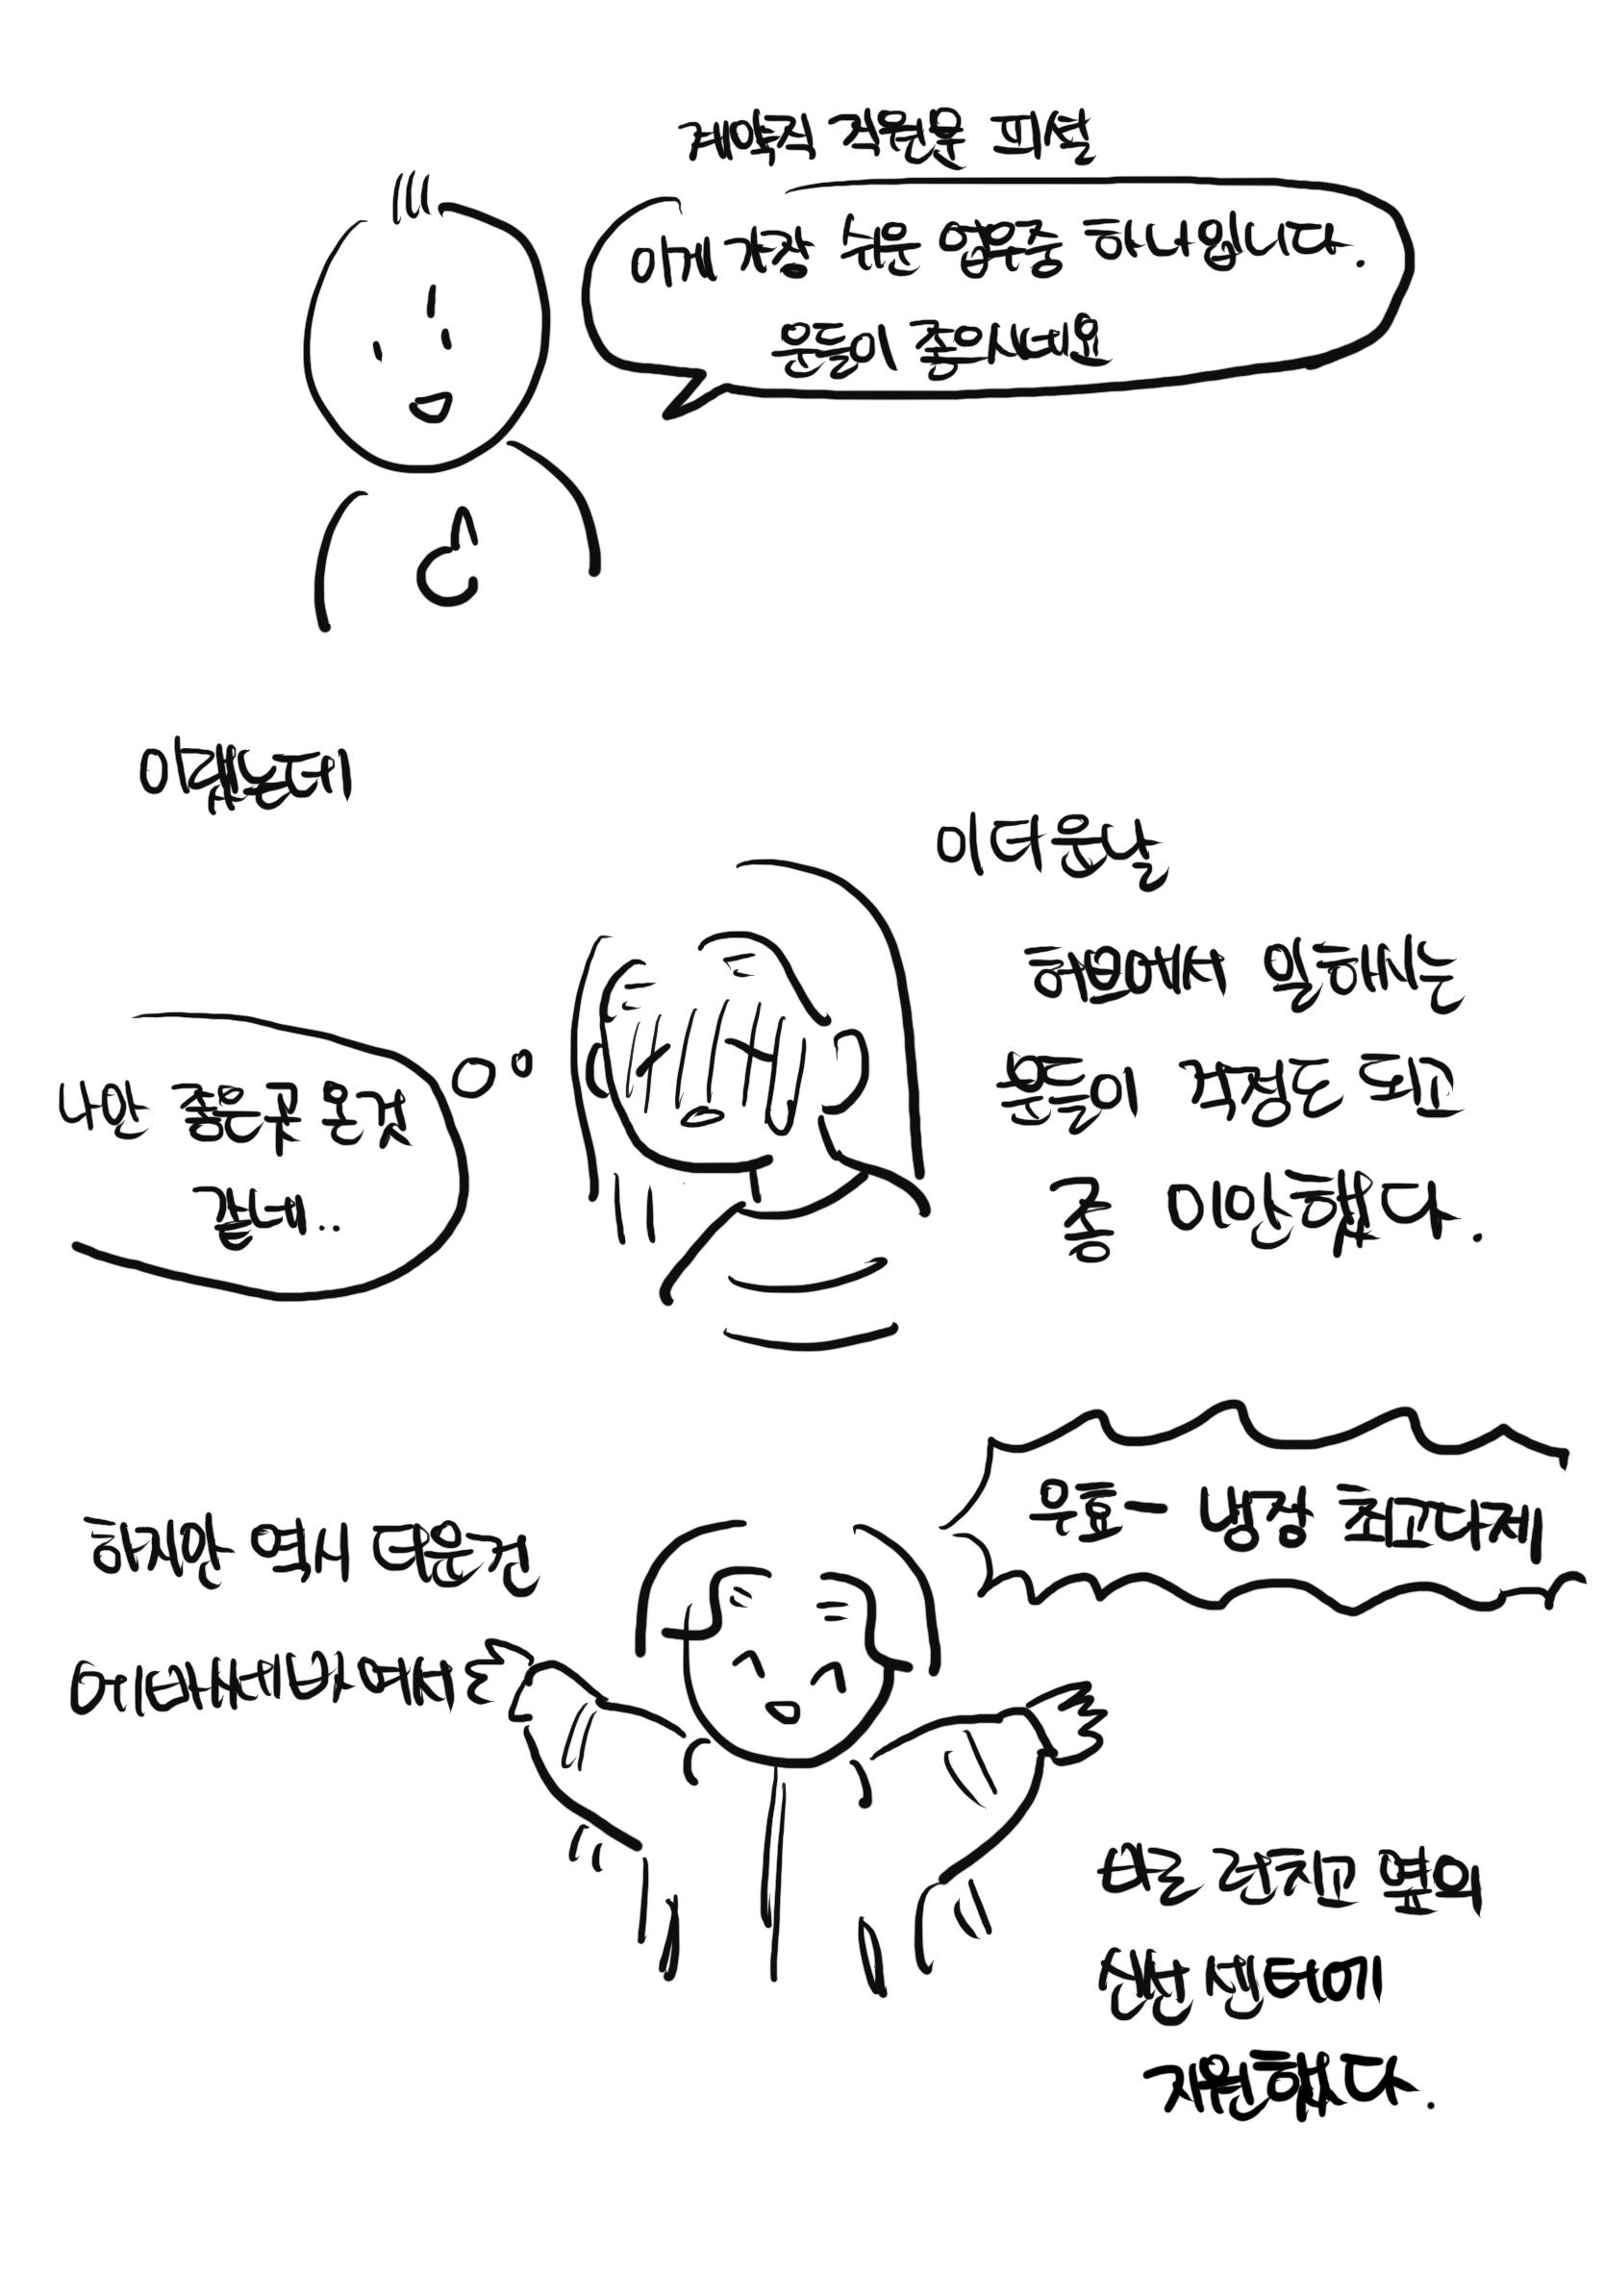 계약직 직원은 피셜
여게 가장 쉬운 업무중 하나입니다.
운들이 좋으시네요
이랬는데
이 더운날
해변에서 일하시는
분들이 걱정도 되고
좀 미안했다.
나만 좋은곳 온것
같네..
우효ㅡ 냉장 최고다제
하지만 역시 더운건
에바쎄바 때매
나는 던지고 옆의
신선 센터에
지원했다.